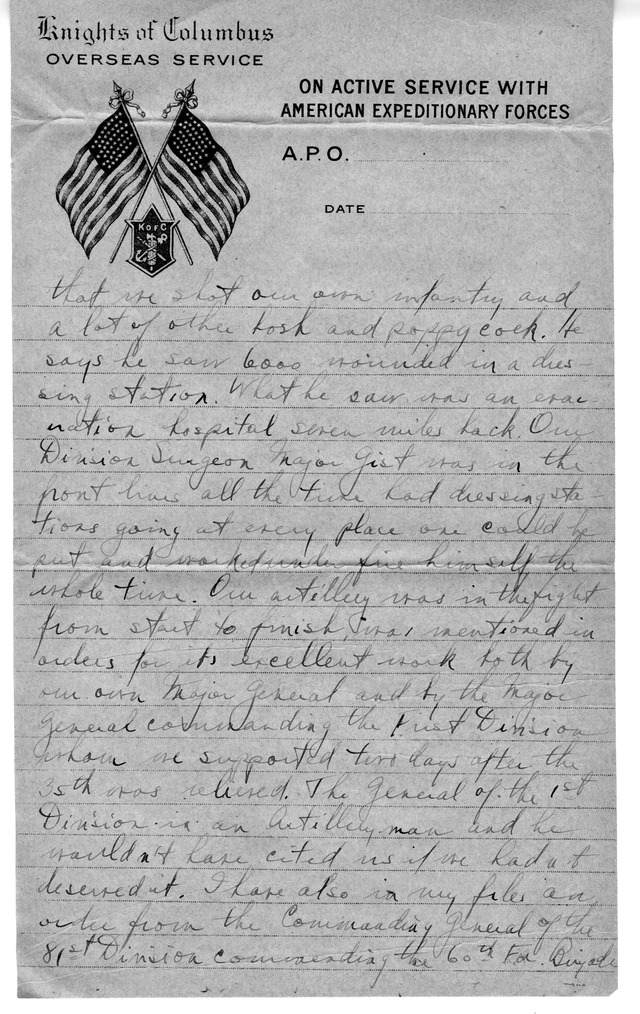 Knights of Columbus
OVERSEAS SERVICE
ON ACTIVE SERVICE WITH
AMERICAN EXPEDITIONARY FORCES
A.P.O.
DATE
K of C
that we shot our own infantry and
a lot of other bosh and poppycock. He
says he saw 6000 wounded in a dres-
sing station. What he saw was an evac-
uation hospital seven miles back. Our
Division Surgeon Major Gist was in the
front lines all the time had dressing sta-
tions going at every place one could be
put and worked under fire himself the
whole time. Our artillery was in the fight
from start to finish, was mentioned in
orders for its excellent work both by
our own Major General and by the Major
General commanding the First Division
whom we supported two days after the
35th was relieved. The General of the 1st
Division is an Artillery man and he
wouldn't have cited us if we hadn't
deserved it. I have also in my files an
order from the Commanding General of the
81st Division commending the 60th F.A. Brigade